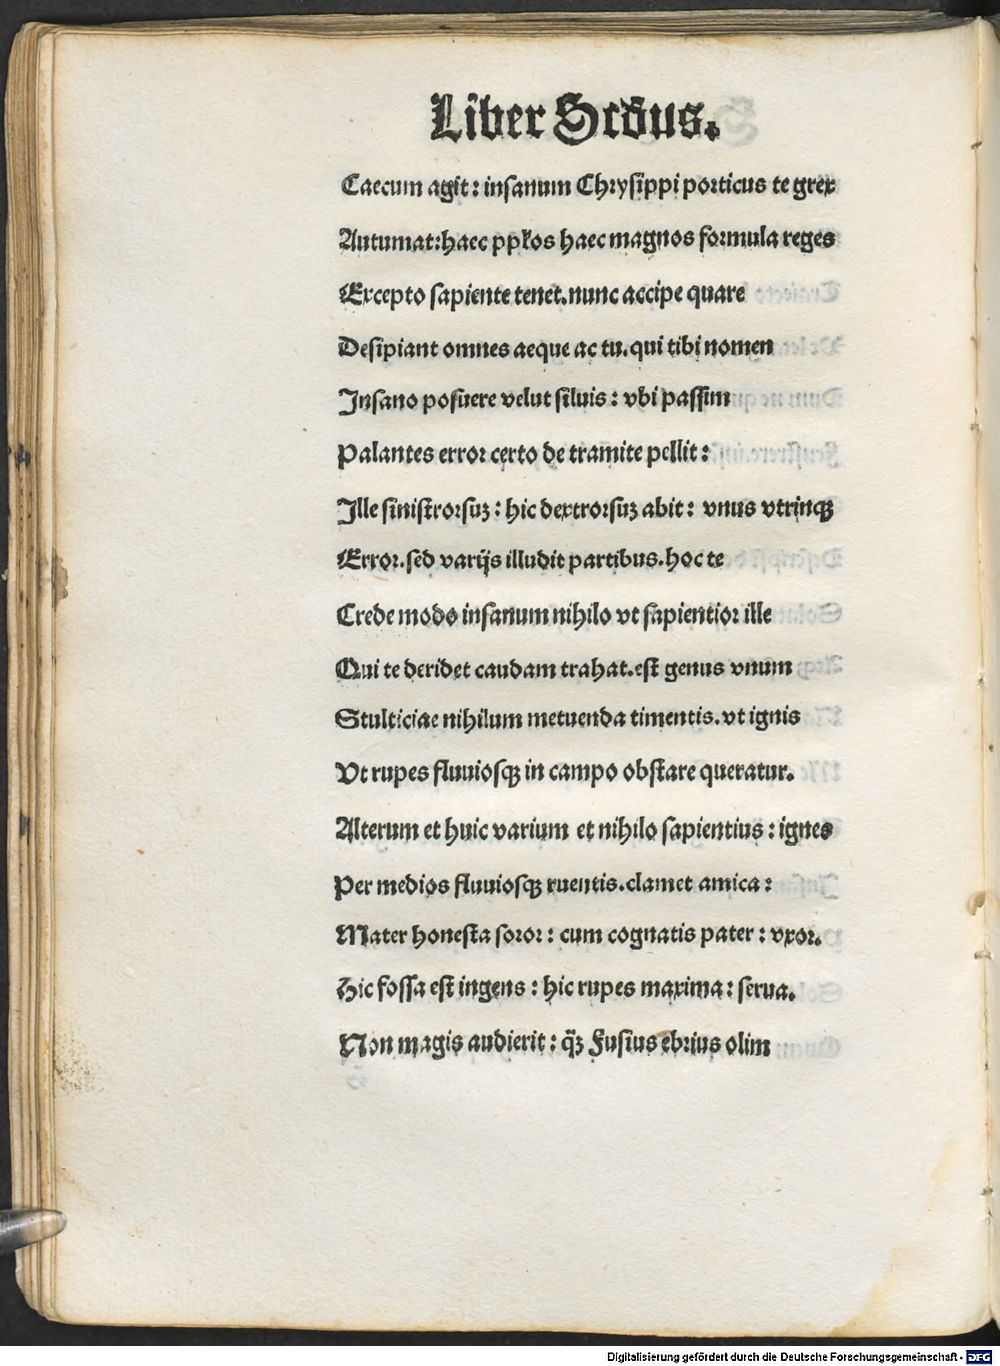 Liber Scdus.
Caecum agit: insanum Chrysippi porticus te grex
Autumat: haec ppłos haec magnos formula reges
Excepto sapiente tenet. nunc accipe quare
Desipiant omnes aeque ac tu. qui tibi nomen
Insano posuere velut siluis: vbi passim
Palantes error certo de tramite pellit:
Ille sinistrorsuꝫ: hic dextrorsuꝫ abit: vnus vtrinqꝫ
Error. sed varijs illudit partibus. hoc te
Crede modo insanum nihilo vt sapientior ille
Qui te deridet caudam trahat. est genus vnum
Stulticiae nihilum metuenda timentis. vt ignis
Vt rupes fluuiosqꝫ in campo obstare queratur.
Alterum et huic varium et nihilo sapientius: ignes
Per medios fluuiosqꝫ ruentis. clamet amica:
Mater honesta soror: cum cognatis pater: vxor.
Hic fossa est ingens: hic rupes maxima: serua.
Non magis audierit: q̃ꝫ Fusius ebrius olim
Digitalisierung gefördert durch die Deutsche Forschungsgemeinschaft - DFG